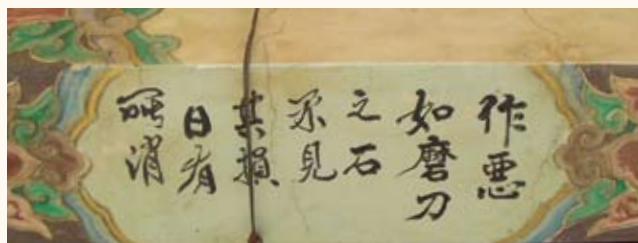 作悪
如磨刀
之石
不見
其損
日有
所消